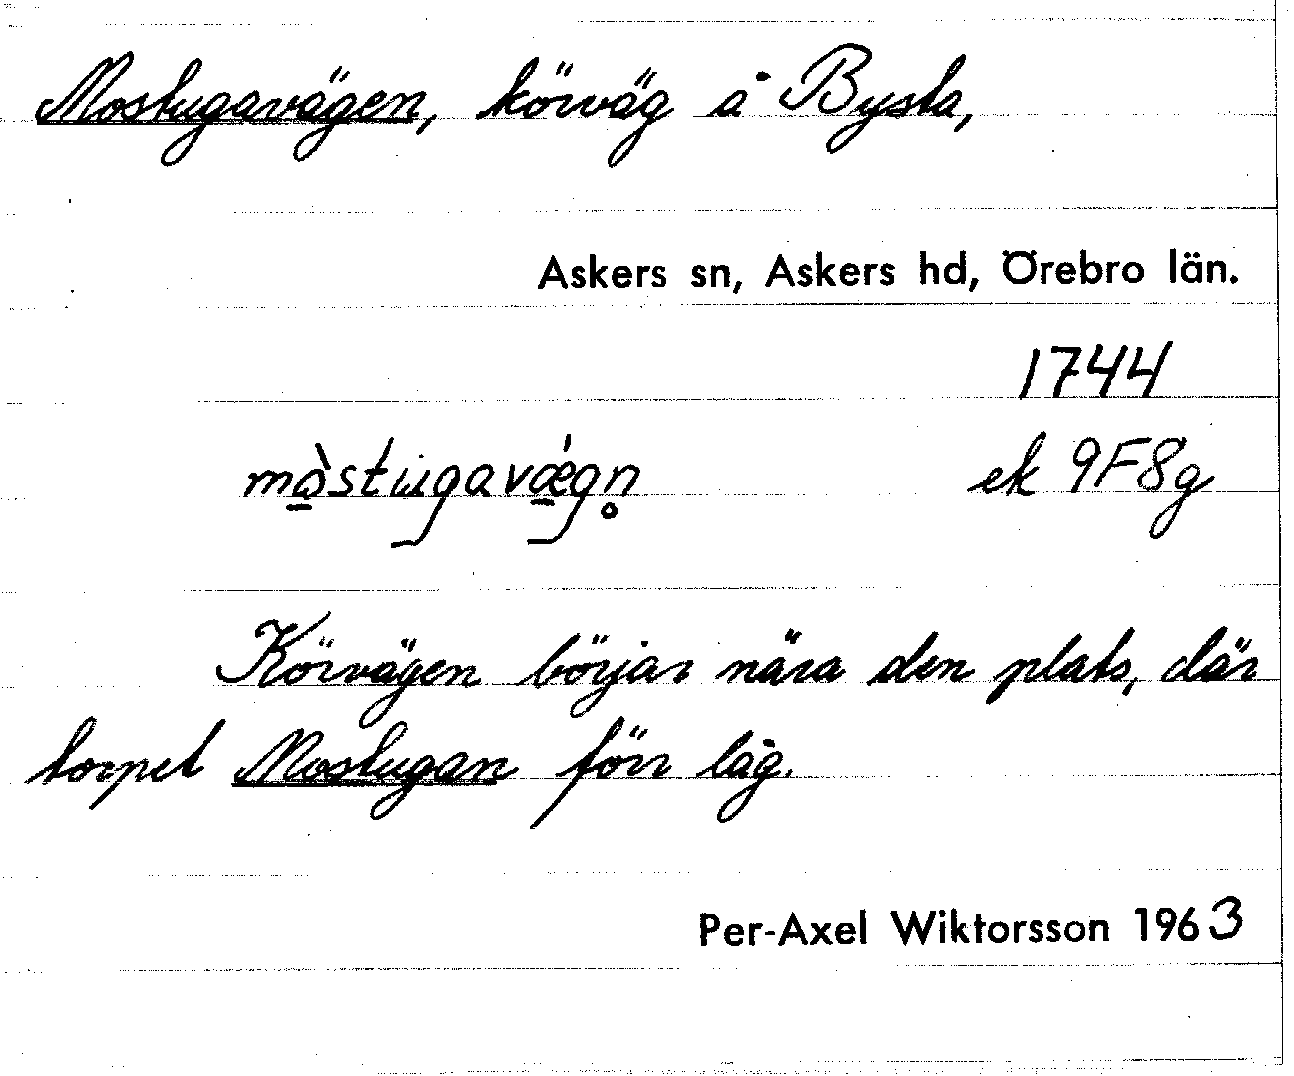 Mostugavägen, körväg å Bysta,
Askers sn, Askers hd, Örebro län.
1744
mò̱stu̇gavǽ̱gn̥ ek 9F8g
Körvägen börjar nära den plats, där
torpet Mostugan förr låg.
Per-Axel Wiktorsson 1963